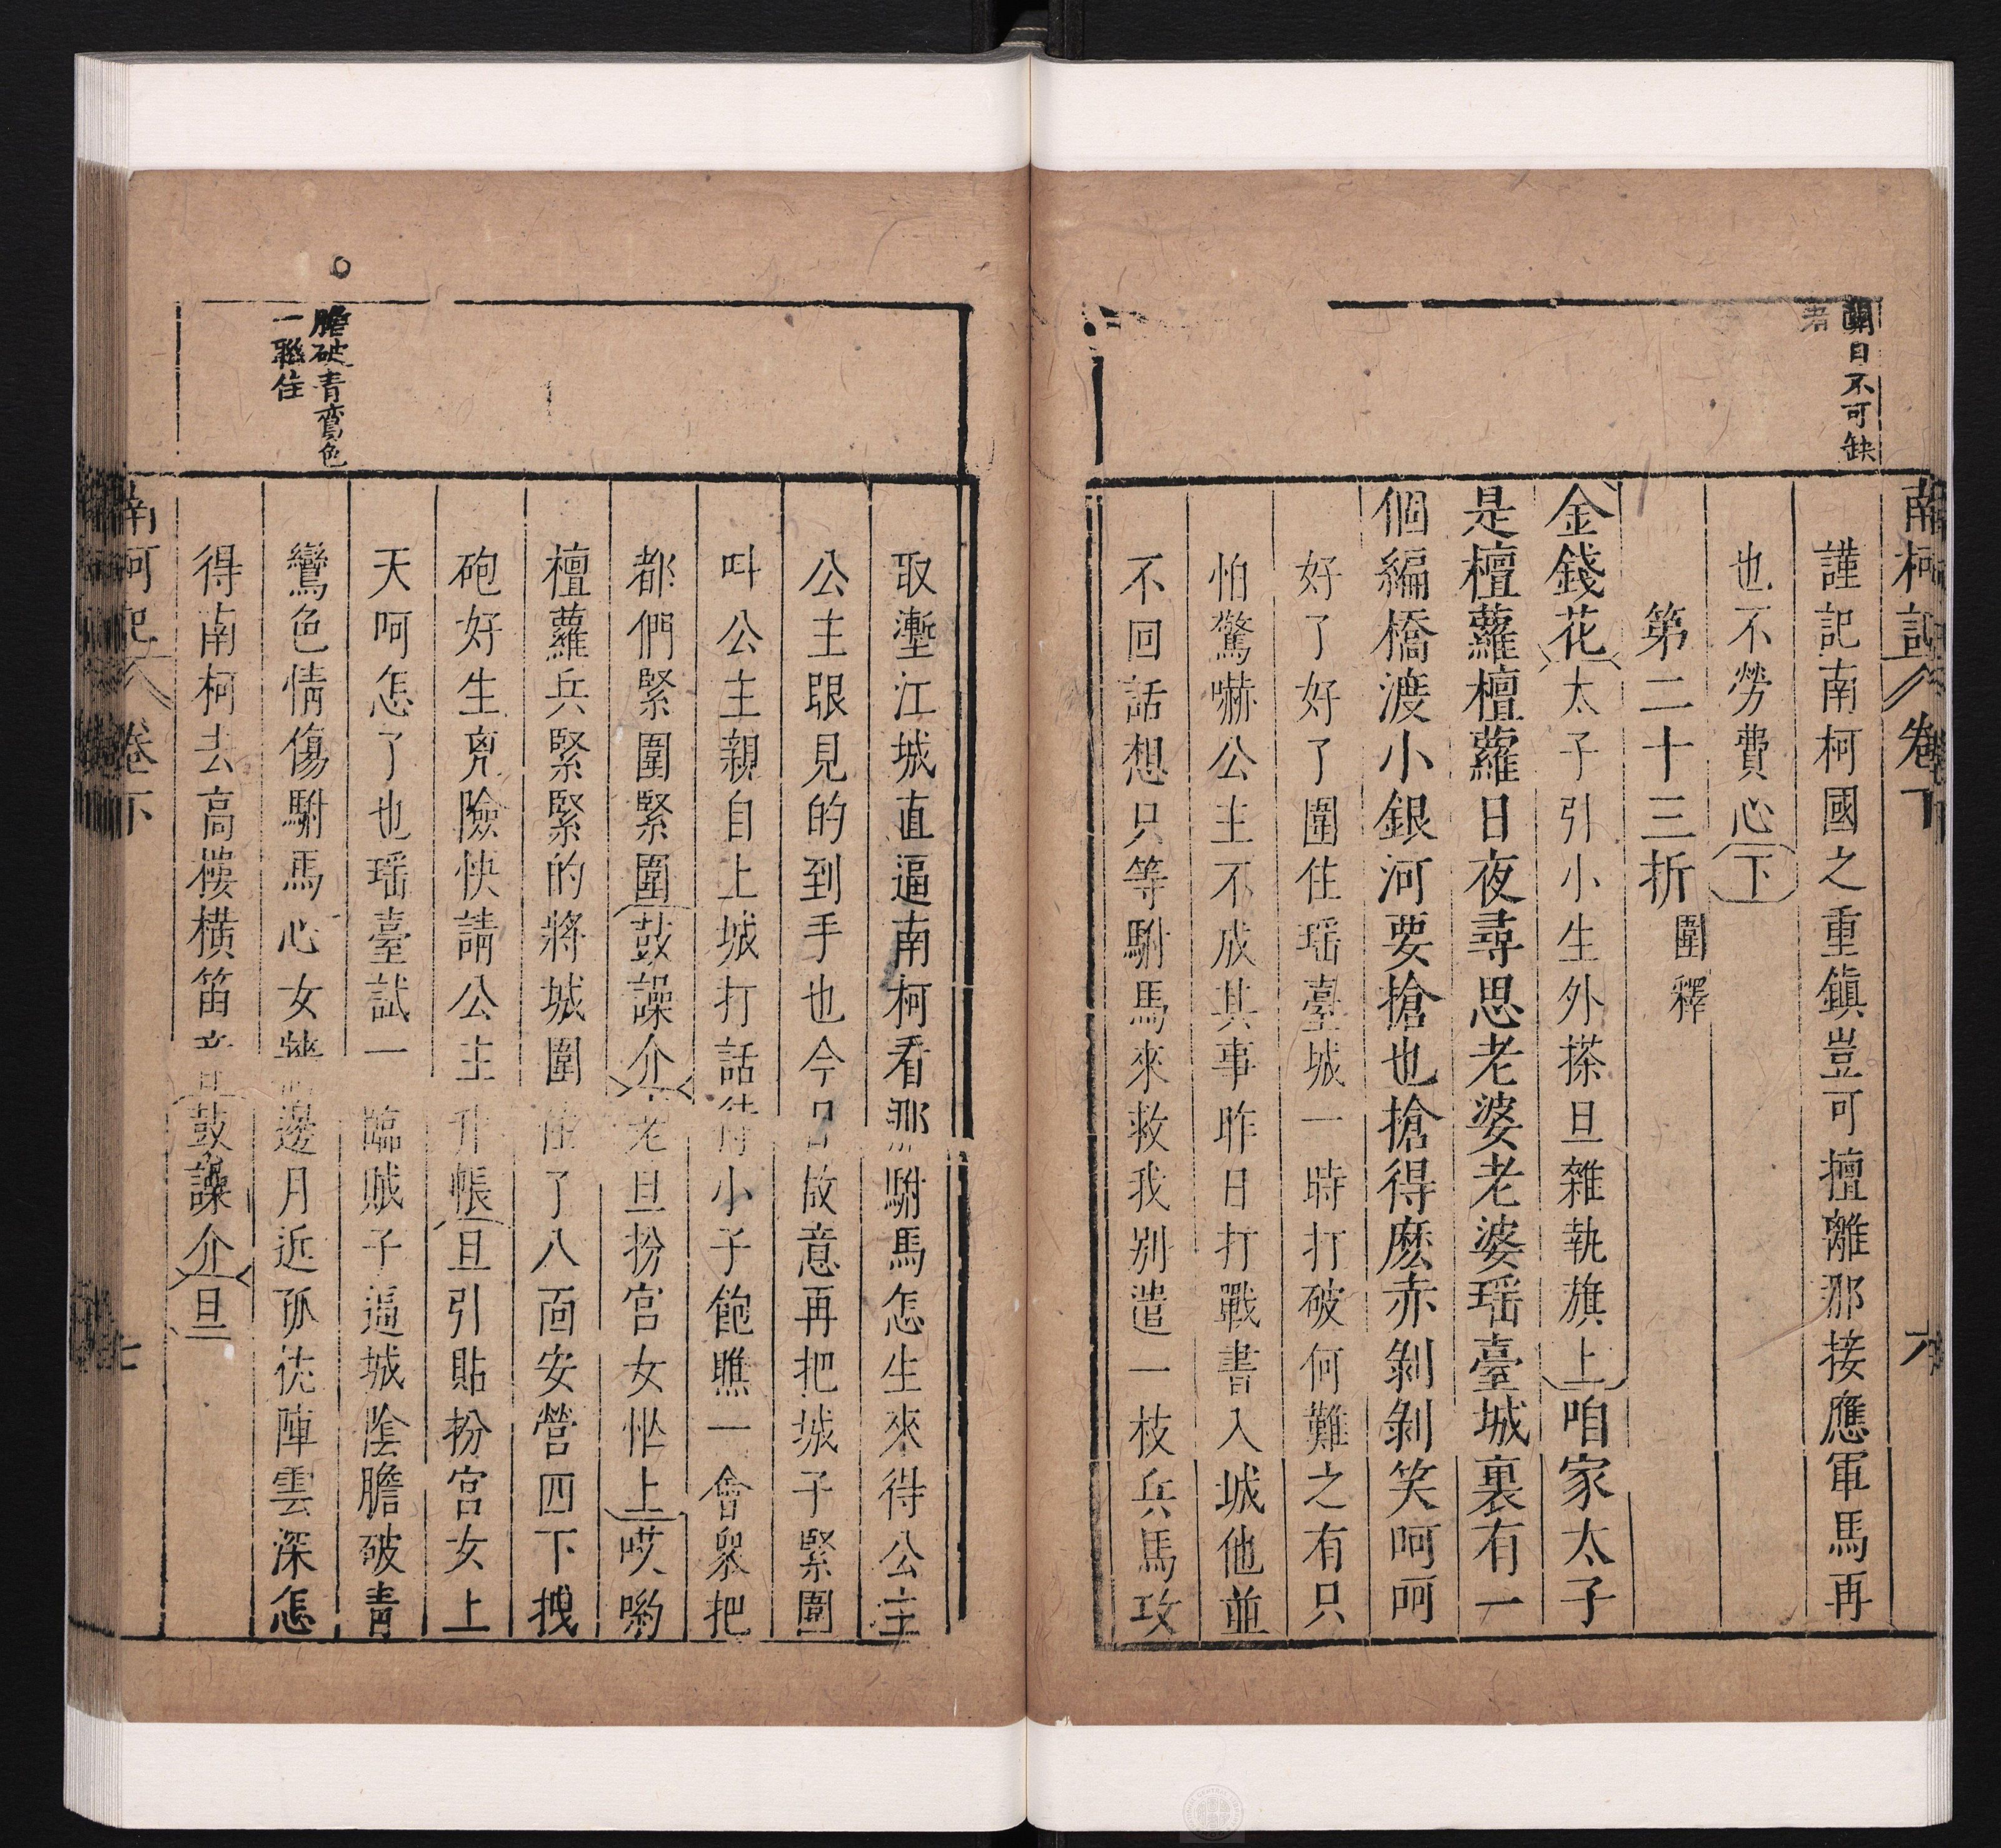 南柯記 卷下 六
關目不可缺
者
謹記南柯國之重鎮豈可擅離那接應軍馬再
也不勞費心下
第二十三折圍釋
金錢花太子引小生外搽旦雜執旗上咱家太子
是檀蘿檀蘿日夜尋思老婆老婆瑶臺城裏有一
個編橋渡小銀河要搶也搶得麽赤剝剝笑呵呵
好了好了圍住瑶臺城一時打破何難之有只
怕驚嚇公主不成其事昨日打戰書入城他並
不回話想只等駙馬來救我別遣一枝兵馬攻
取塹江城直逼南柯看那駙馬怎生來待公主
公主眼見的到手也今日故意再把城子緊圍
叫公主親自上城打話待小子飽瞧一會衆把
都們緊圍緊圍鼓譟介老旦扮宮女忙上哎喲
檀蘿兵緊緊的將城圍住了八面安營四下拽
砲好生兇險快請公主升帳旦引貼扮宮女上
天呵怎了也瑶臺試一臨賊子逼城陰膽破青
鸞色情傷駙馬心女墻邊月近孤徒陣雲深怎
得南柯去高樓橫笛音鼓譟介旦
膽破青鸞色
一聯佳
南柯記 卷下 七